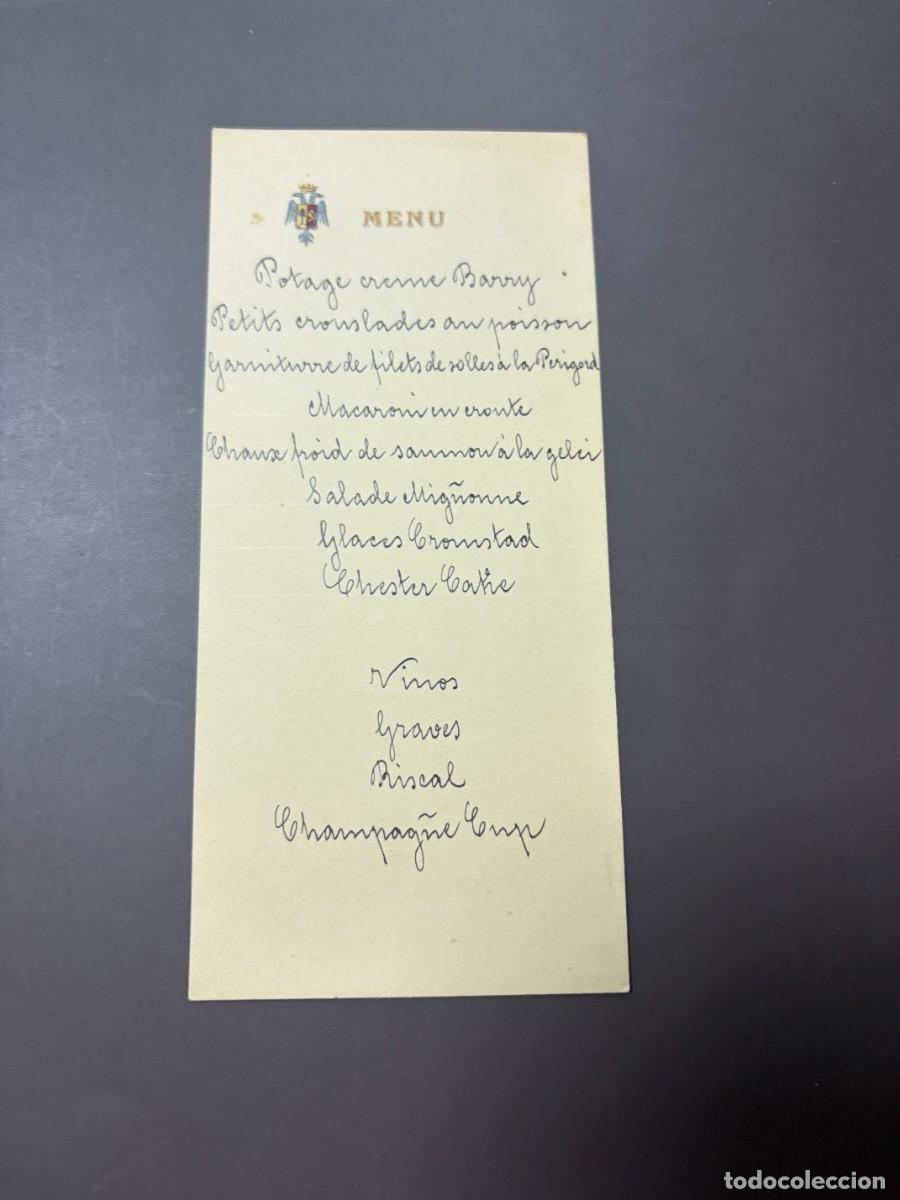 MENU
Potage creme Barry
Petits crouslades au poisson
Garniturre de filets de solles à la Perigord
Macaroni en croute
Chaux froid de saumon à la geleé
Salade Migñonne
Glaces Cromstad
Chester Cake
Vinos
Graves
Riscal
Champagñe Cup
todocoleccion